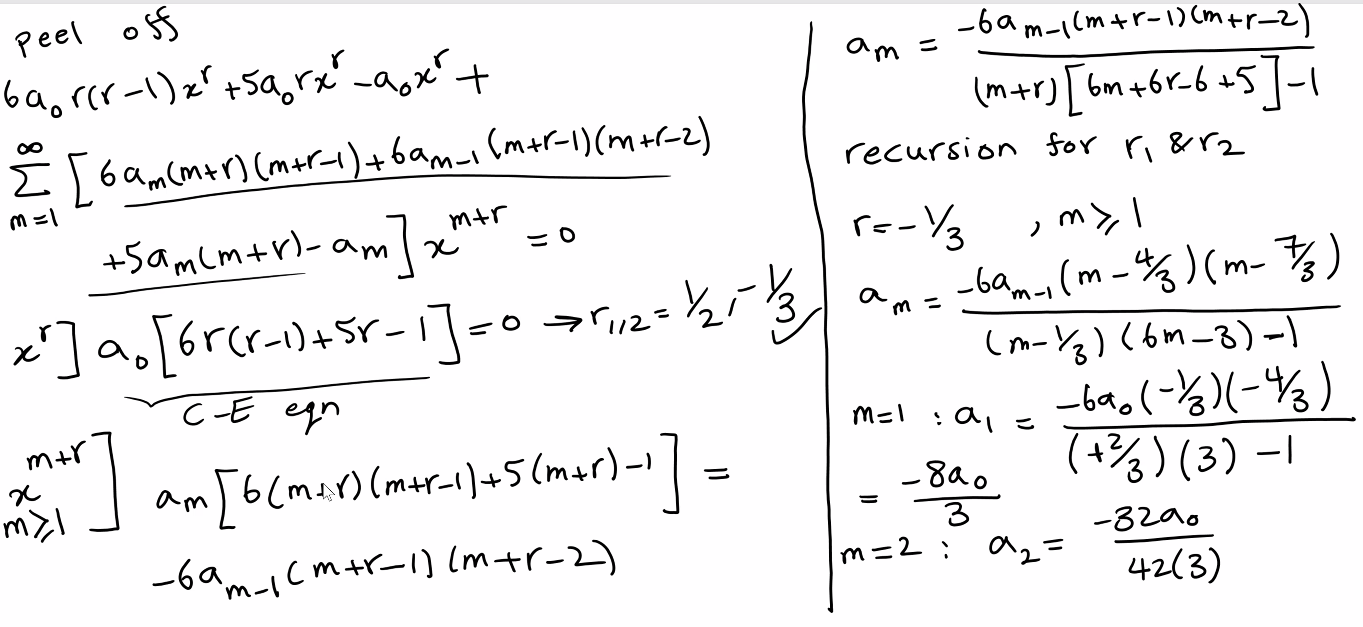 peel off
6a₀r(r-1)xʳ+5a₀rxʳ-a₀xʳ+
∞
∑ [6aₘ(m+r)(m+r-1)+6aₘ₋₁(m+r-1)(m+r-2)
m=1
+5aₘ(m+r)-aₘ]x^(m+r) = 0
xʳ] a₀[6r(r-1)+5r-1]=0 → r₁,₂=1/2,-1/3 ✓
C-E eqn
x^(m+r)] aₘ[6(m+r)(m+r-1)+5(m+r)-1] =
m⩾1
-6aₘ₋₁(m+r-1)(m+r-2)
aₘ = -6aₘ₋₁(m+r-1)(m+r-2)
(m+r)[6m+6r-6+5]-1
recursion for r₁ & r₂
r=-1/3 , m⩾1
aₘ = -6aₘ₋₁(m-4/3)(m-7/3)
(m-1/3)(6m-3)-1
m=1 : a₁ = -6a₀(-1/3)(-4/3)
(+2/3)(3)-1
= -8a₀
3
m=2 : a₂= -32a₀
42(3)